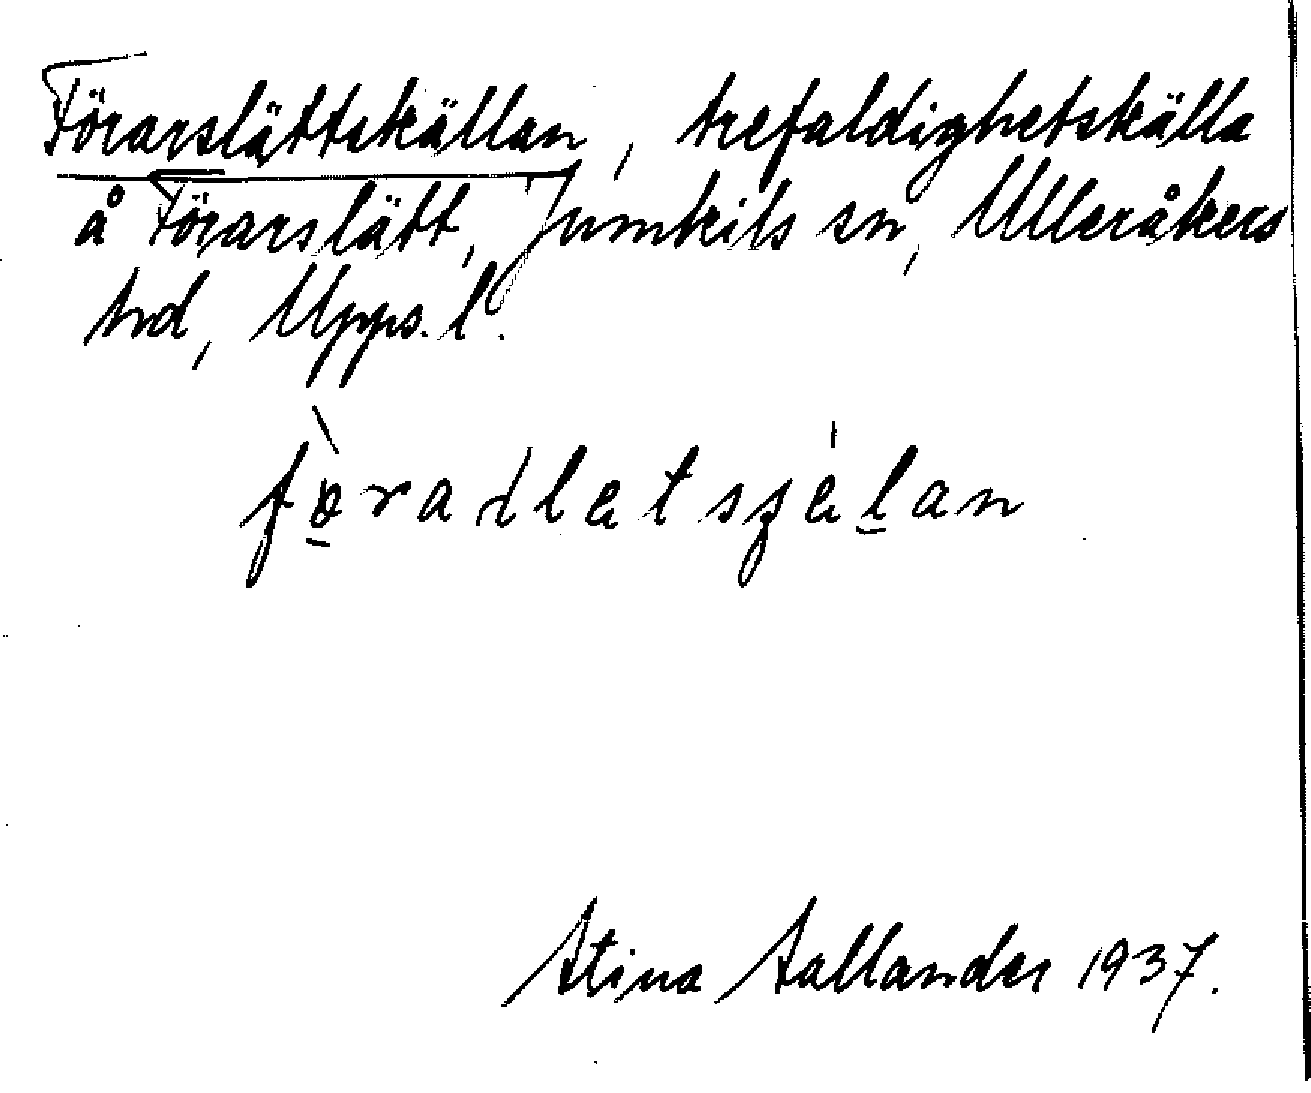 Förarslättskällan, trefaldighetskälla
å Förarslätt, Jumkils sn, Ulleråkers
hd, Upps. l.
fø̀radletsʂelan
Stina Sallander 1937.